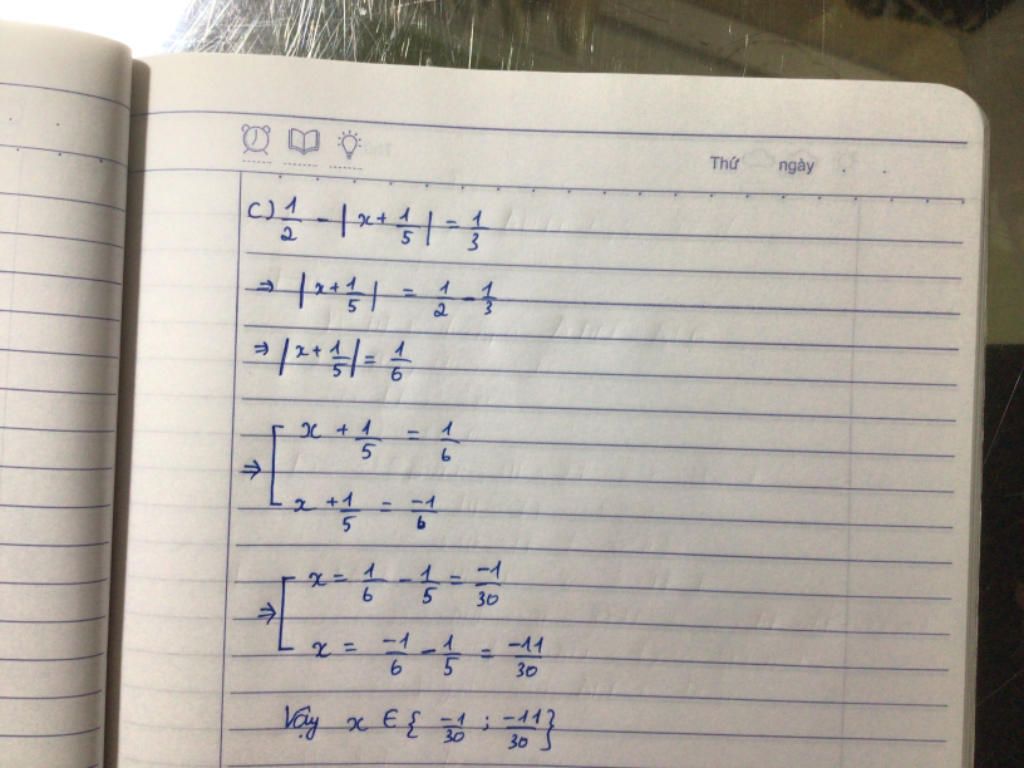 Thứ ngày . .
c) 1/2 - |x + 1/5| = 1/3
⇒ |x + 1/5| = 1/2 - 1/3
⇒ |x + 1/5| = 1/6
⇒ [ x + 1/5 = 1/6
x + 1/5 = -1/6
⇒ [ x = 1/6 - 1/5 = -1/30
x = -1/6 - 1/5 = -11/30
Vậy x ∈ { -1/30 ; -11/30 }